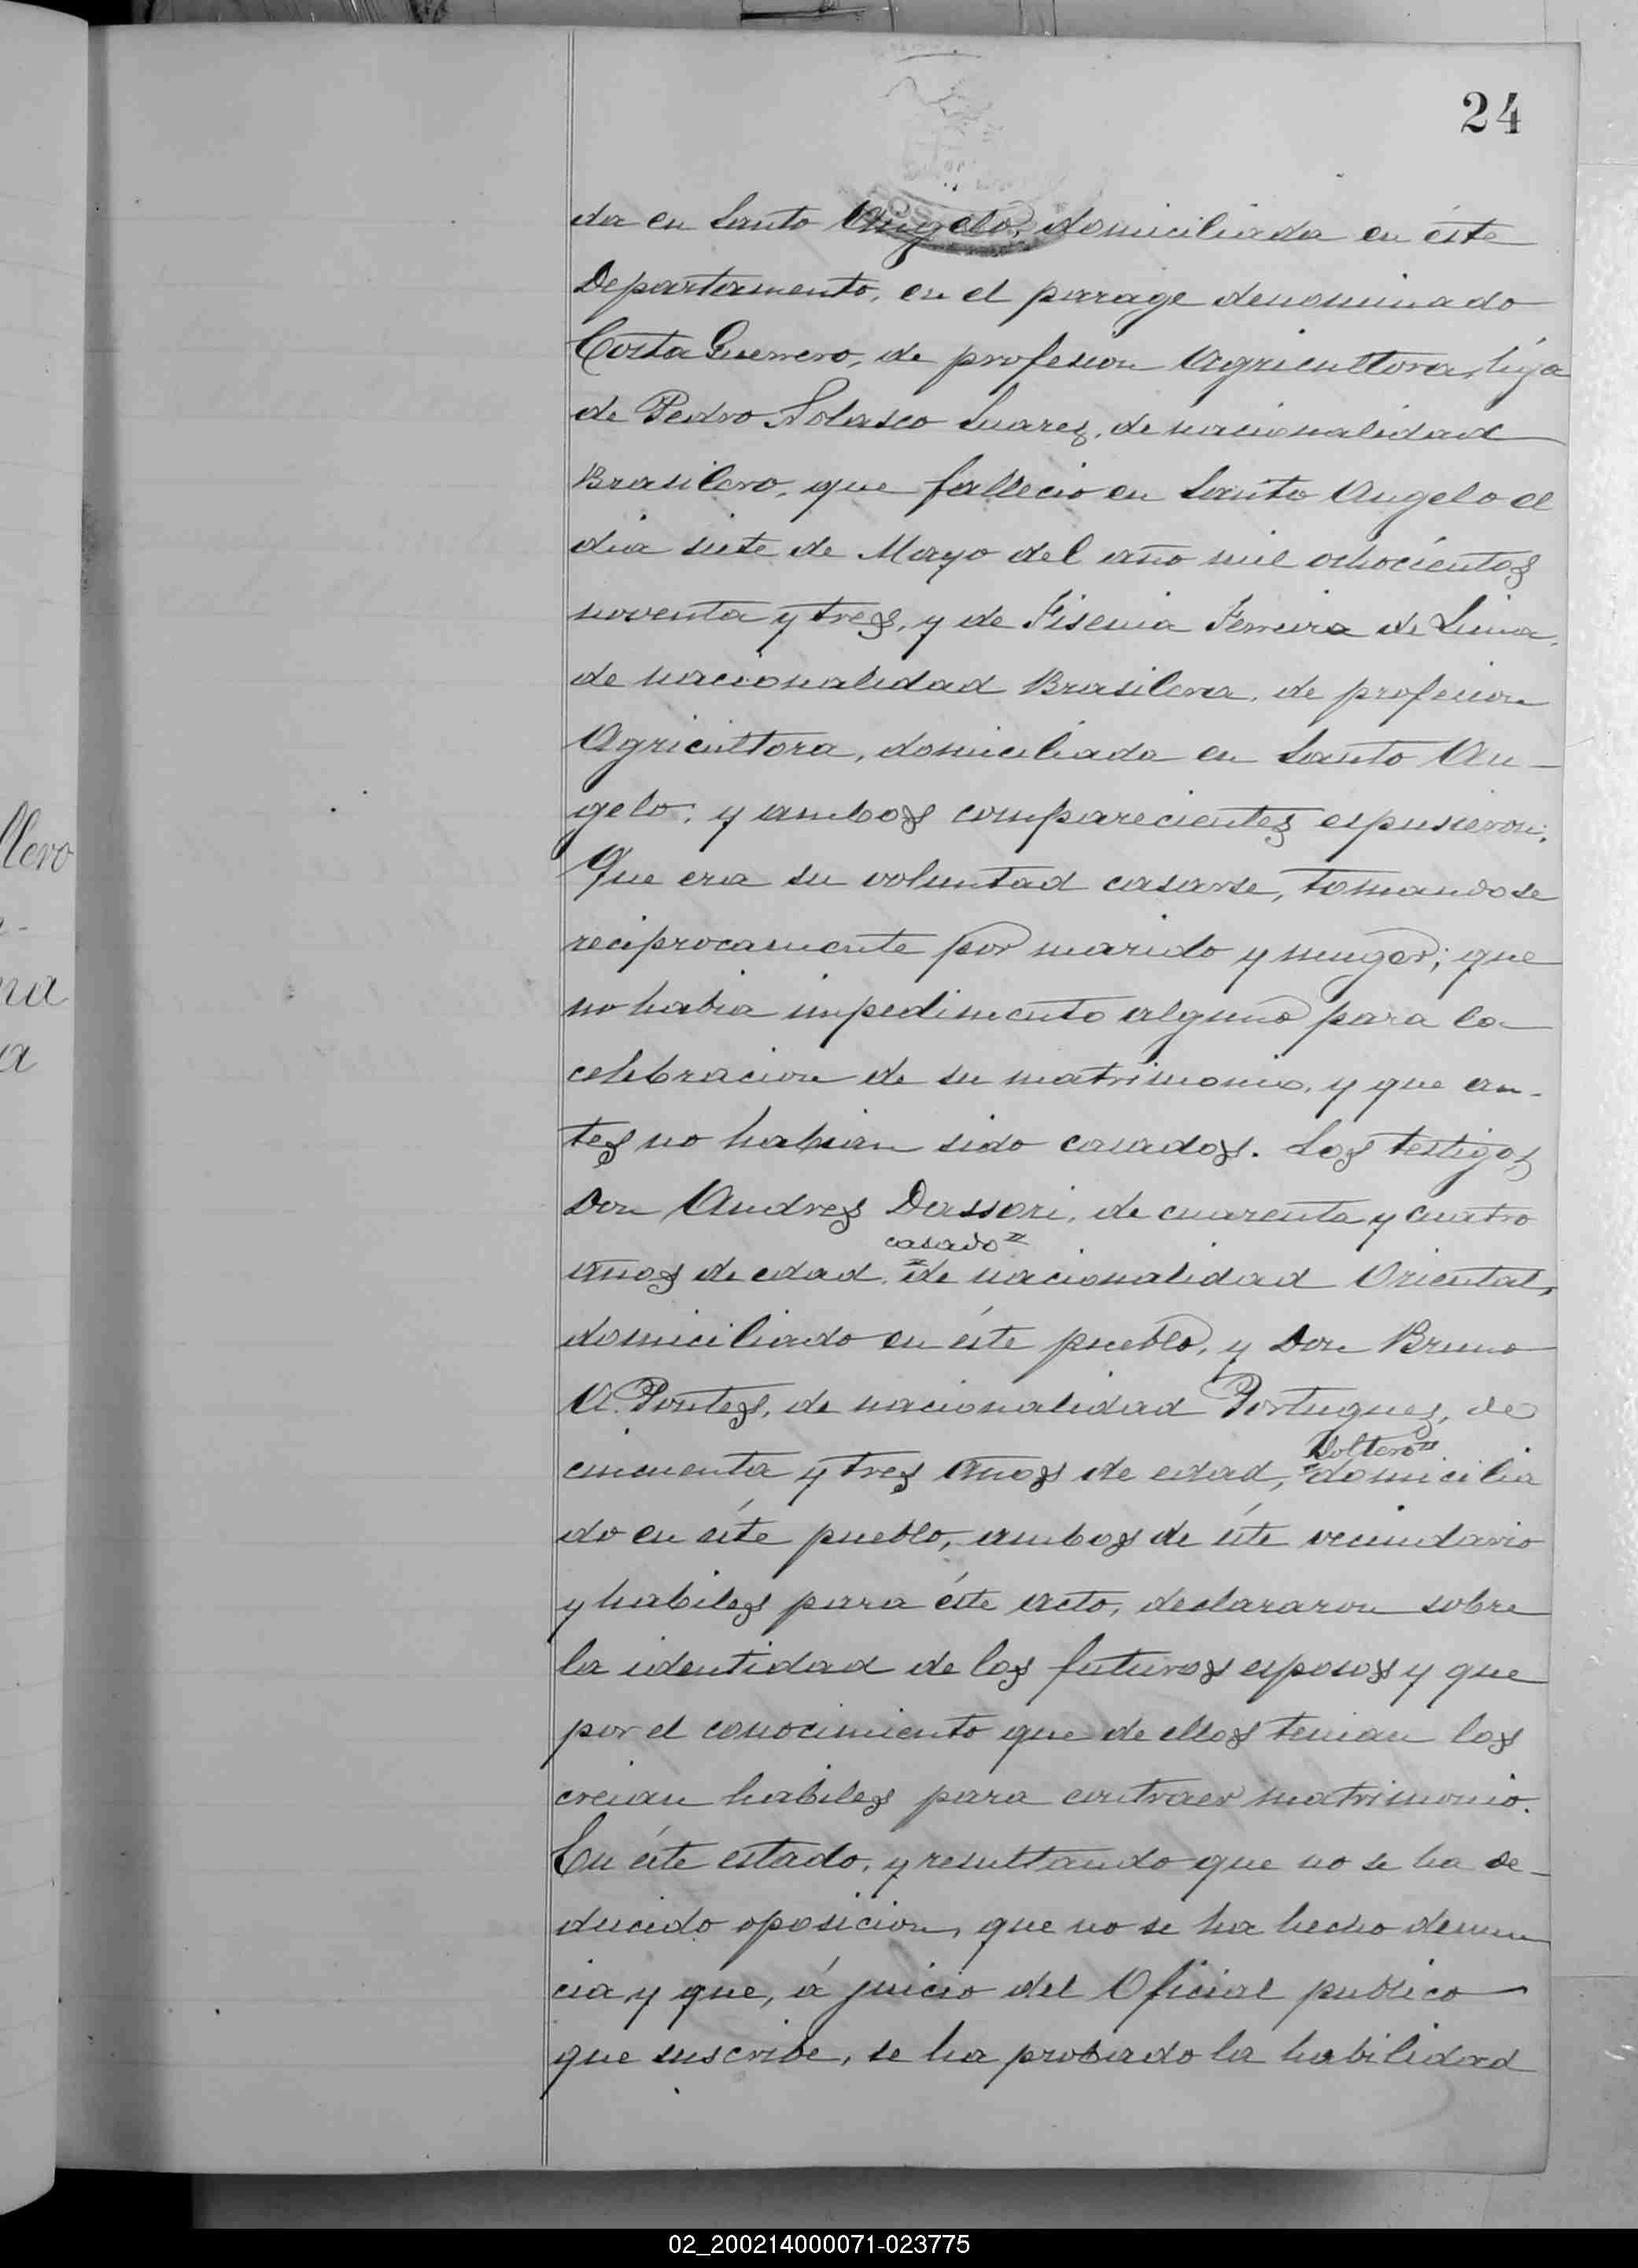 24
da en Santo Angelo, domiciliada en éste
Departamento, en el parage denominado
Costa Guerrero, de profesion Agricultora, hija
de Pedro Nolasco Suarez, de nacionalidad
Brasilero, que fallecio en Santo Angelo el
dia siete de Mayo del año mil ochocientos
noventa y tres, y de Fisenia Ferreira de Lima,
de nacionalidad Brasilera, de profesion
Agricultora, domiciliada en Santo An-
gelo; y ambos comparecientes espusieron:
Que era su voluntad casarse, tomandose
reciprocamente por marido y muger; que
no habia impedimento alguno para la
celebracion de su matrimonio, y que an-
tes no habian sido casados. Los testigos
Don Andres Dassori, de cuarenta y cuatro
casado
años de edad, de nacionalidad Oriental,
domiciliado en éste pueblo, y Don Bruno
A. Pontes, de nacionalidad Portuguez, de
Soltero
cincuenta y tres años de edad, domicilia
do en éste pueblo, ambos de éste vecindario
y habiles para éste acto, declararon sobre
la identidad de los futuros esposos y que
por el conocimiento que de ellos tenian los
creian habiles para contraer matrimonio.
En éste estado, y resultando que no se ha de-
ducido oposicion, que no se ha hecho denun
cia y que, á juicio del Oficial publico
que suscribe, se ha probado la habilidad
llero
na
a
02_200214000071-023775